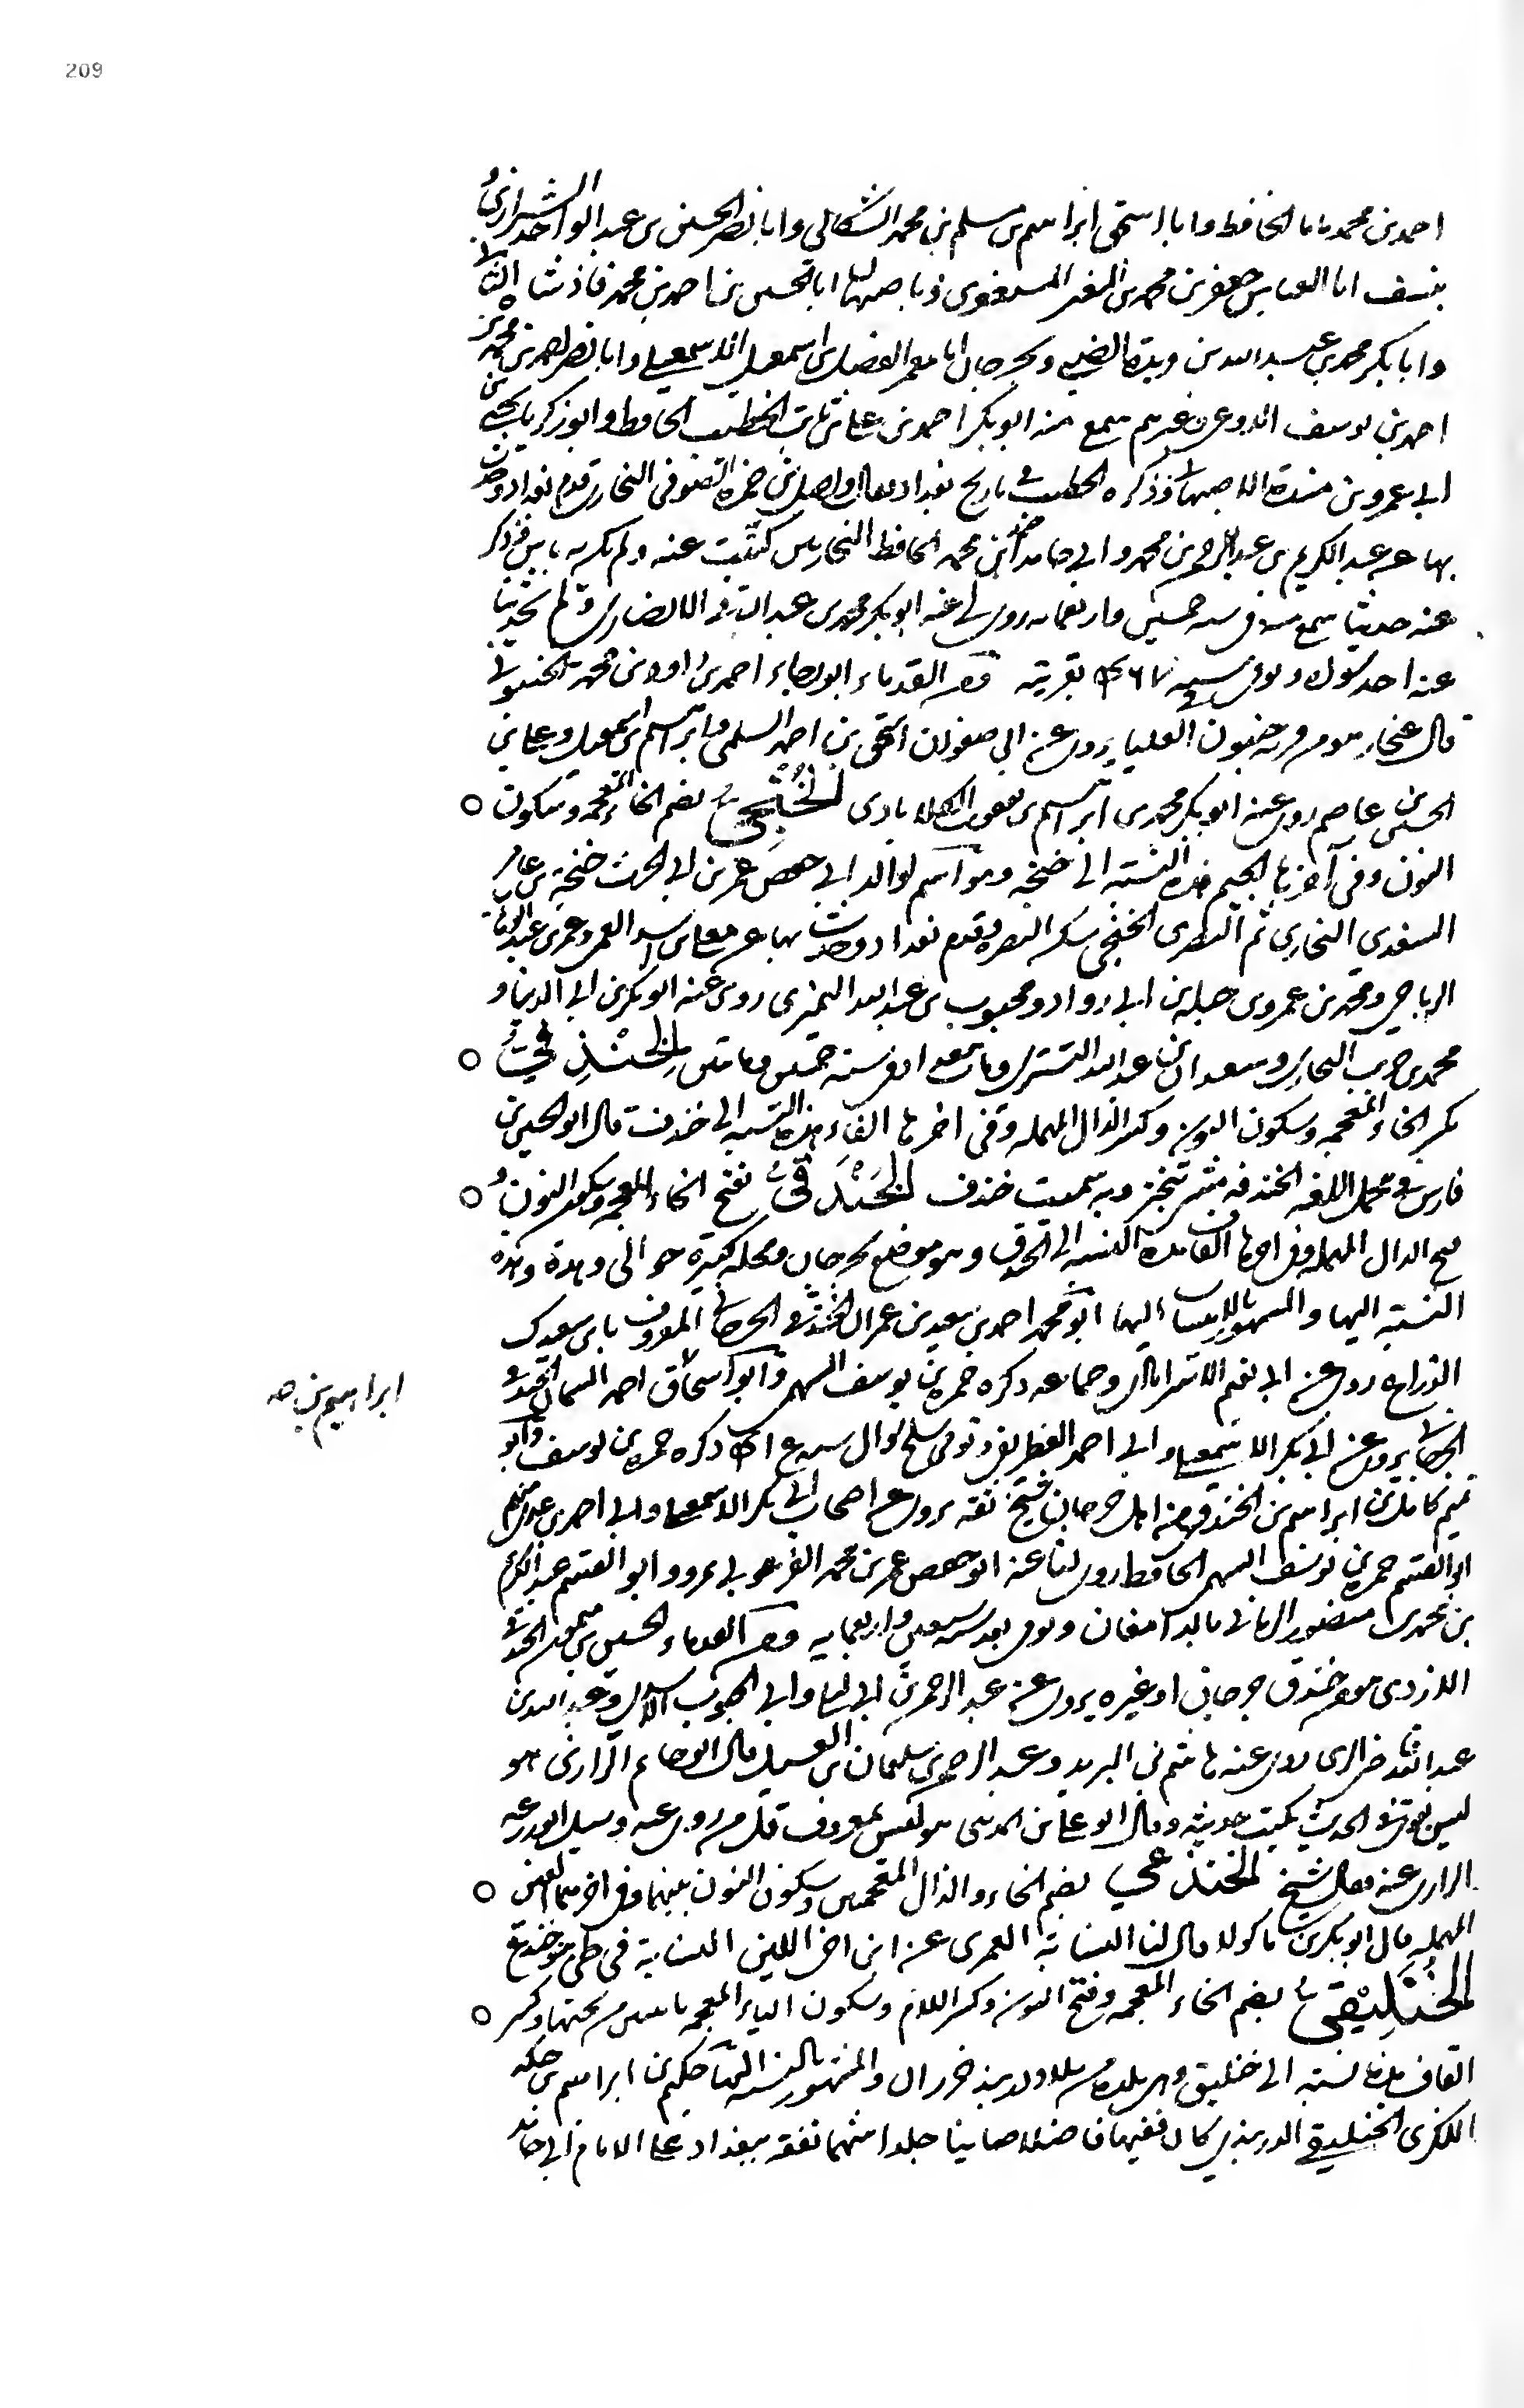 209
احمد بن محمد بابا الحافظ وابا اسحق ابراهيم بن مسلم بن محمد الشكاني وابا نصر الحسن بن عبد الواحد الشيرازي
بنسف ابا العباس جعفر بن محمد بن المعتز المستغفري وباصبهان ابا الحسن بن احمد بن محمد فاذشاه التاني
وابا بكر محمد بن عبد الله بن ريذه الضبي وبجرجان ابا معمر المفضل بن اسمعيل الاسمعيلي وابا نصر احمد بن محمد بن
احمد بن يوسف وغيرهم سمع منه ابو بكر احمد بن علي بن ثابت الخطيب الحافظ وابو زكريا يحيى بن
ابي عمرو بن مندة الاصبهاني وذكره الخطيب في تاريخ بغداد فقال واصل بن حمزة الصوفي البخاري قدم بغداد وحدث
بها عن عبد الكريم بن عبد الرحمن بن محمد وابي حامد احمد بن محمد الحافظ البخاريين كتبت عنه ولم يكن به باس فذكر
عنه حديثا سمع منه في سنة خمسين واربعمايه روى لي عنه ابو بكر محمد بن عبد الباقي الانصاري ولم يحدثنا
عنه احد سواه وتوفي سنة بقريته ومن القدماء ابو رجاء احمد بن داود بن محمد الخنبوني
قال غنجار هو من قرية خنبون العليا يروي عن ابي صفوان اسحق بن احمد السلمي وابراهيم بن اسمعيل وعلي بن
الحسين بن عاصم روى عنه ابو بكر محمد بن ابراهيم بن يعقوب الكلاباذي الخُنْجِيُّ بضم الخاء المعجمه وسكون ○
النون وفي آخرها الجيم هذه النسبة الى خنجه وهو اسم لوالد ابي حفص عمر بن ابي الحرث خنجة بن عامر
السغدي البخاري ثم البصري الخنجي سكن البصرة وقدم بغداد وحدث بها عن معلى بن اسد العمي وعمر بن عبد الوهاب
الرياحي ومحمد بن عمرو بن جبلة بن ابي رواد ومحبوب بن عبد الله النميري روى عنه ابو بكر بن ابي الدنيا و
محمد بن حريث البخاري وسعدان بن عبد الله التستري ومات ببغداد في سنة خمسين ومايتين الخِنْدِفِيُّ ○
بكسر الخاء المعجمه وسكون النون وكسر الدال المهمله وفي اخرها الفاء هذه النسبة الى خندف قال ابو الحسين بن
فارس في مجمل اللغه الخندفه مشي تبختر وبه سميت خندف الخَنْدَقيُّ بفتح الخاء المعجمه وسكون النون ○
وفتح الدال المهمله وفي اخرها القاف هذه النسبة الى الخندق وهو موضع بجرجان ومحله كبيرة حوالى وهدة وهذه
النسبة اليها والمشهور بالانتساب اليها ابو محمد احمد بن سعيد بن عمران الخندقي الجرجاني المعروف بابن سعيدك
الذراع روى عن ابي نعيم الاستراباذي وجماعه ذكره حمزة بن يوسف السهمي وابو اسحاق احمد السمان الخندقي
ابراهيم بن صح
الجرجاني يروي عن ابي بكر الاسمعيلي وابي احمد الغطريفي وتوفي سلخ شوال سنة ذكره حمزة بن يوسف وابو
تميم كامل بن ابراهيم بن الخندقي من اهل جرجان شيخ ثقة يروي عن اصحاب ابي بكر الاسمعيلي وابي احمد بن عدي منهم
ابو القسم حمزة بن يوسف السهمي الحافظ روى لنا عنه ابو حفص عمر بن محمد الفرغولي بمرو وابو القسم عبد الكريم
بن محمد بن منصور الرماني بالدامغان وتوفي بعد سنة سبعين واربعمايه ومن القدماء الحسين بن ميمون الخندقي
الازدي هو من خندق جرجان او غيره يروي عن عبد الرحمن بن ابي ليلى وابي الجنوب الاسدي وعبد الله بن
عبد الله قاضي الري روى عنه هاشم بن البريد وعبد الرحمن بن سليمان بن الغسيل قال ابو حاتم الرازي هو
ليس بقوي في الحديث يكتب حديثه وقال ابو علي بن المديني هو ليس بمعروف قل من روى عنه وسئل ابو زرعه
الرازي عنه فقال شيخ الخُنْذُعي بضم الخاء والذال المعجمتين وسكون النون بينهما وفي اخرها العين ○
المهمله قال ابو بكر بن ماكولا قال لنا النسابة العمري عن ابن اخي اللبن النسابة في طي هو خنذع
الخُنَلِيْقيُّ بضم الخاء المعجمه وفتح النون وكسر اللام وسكون الياء المعجمه باثنتين من تحتها وكسر ○
القاف هذه النسبة الى خنليق وهي بلدة من بلاد دربند خزران والمشهور بالنسبة اليها حكيم بن ابراهيم بن حكيم
اللكزي الخنليقي الدربندي كان فقيها فاضلا صاينا جلدا منهما تفقه ببغداد على الامام ابي حامد